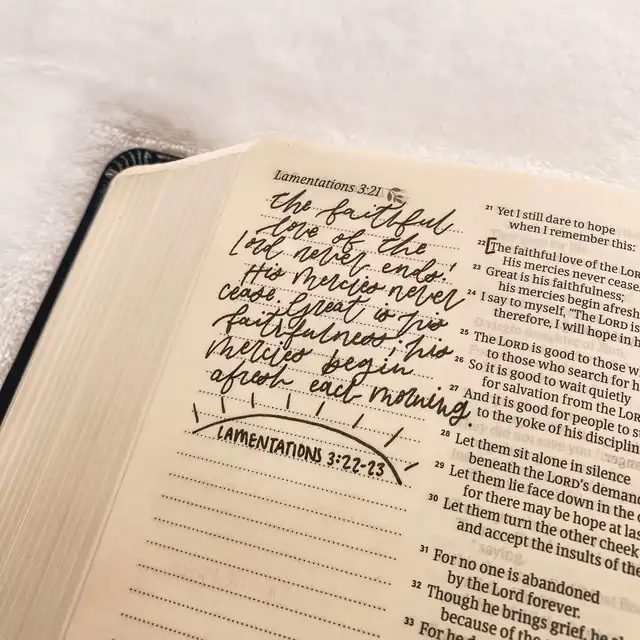 Lamentations 3:21
the faithful
love of the
Lord never ends!
His mercies never
cease. Great is his
faithfulness; his
mercies begin
afresh each morning.
LAMENTATIONS 3:22-23
21 Yet I still dare to hope
when I remember this:
22 [The faithful love of the
His mercies never cease
23 Great is his faithfulness;
his mercies begin afresh
24 I say to myself, "The LORD is
therefore, I will hope in
25 The LORD is good to those
to those who search for
26 So it is good to wait quietly
for salvation from the
27 And it is good for people to
to the yoke of his
28 Let them sit alone in silence
beneath the LORD's
29 Let them lie face down in the
for there may be hope at
30 Let them turn the other cheek
and accept the insults of
31 For no one is abandoned
by the Lord forever.
32 Though he brings grief, he
because of
33 For he